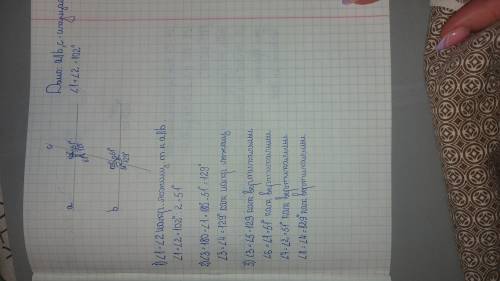 Дано: a||b, c-секущая
∠1+∠2=102°
a
b
c
1) ∠1=∠2 накр. лежащ. т.к a||b
∠1=∠2=102°:2=51°
2) ∠3=180-∠1=180-51°=129°
∠3=∠4=129° как накр. лежащ
3) ∠3=∠5=129 как вертикальные
∠6=∠1=51° как вертикальные
∠7=∠2=51° как вертикальные
∠8=∠4=129° как вертикальные